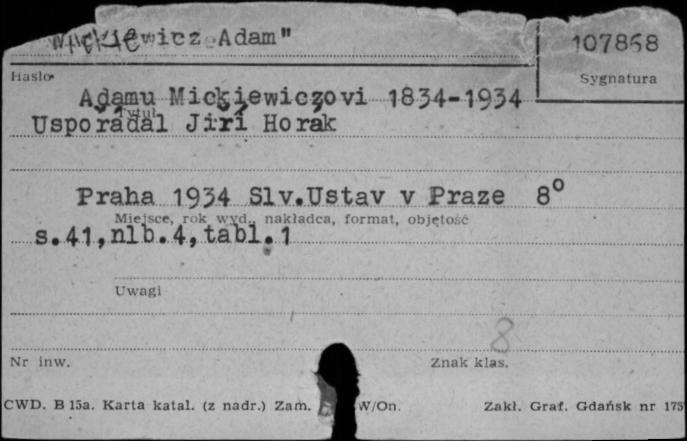 Mickiewicz Adam"
107868
Hasło
Sygnatura
Adamu Mickiewiczovi 1834-1934
Tytuł
Usporádal Jiří Horák
Praha 1934 Slv.Ustav v Praze 8°
Miejsce, rok wyd., nakładca, format, objętość
s.41,nlb.4,tabl.1
Uwagi
8
Nr inw.
Znak klas.
CWD. B 15a. Karta katal. (z nadr.) Zam. W/On. Zakł. Graf. Gdańsk nr 175